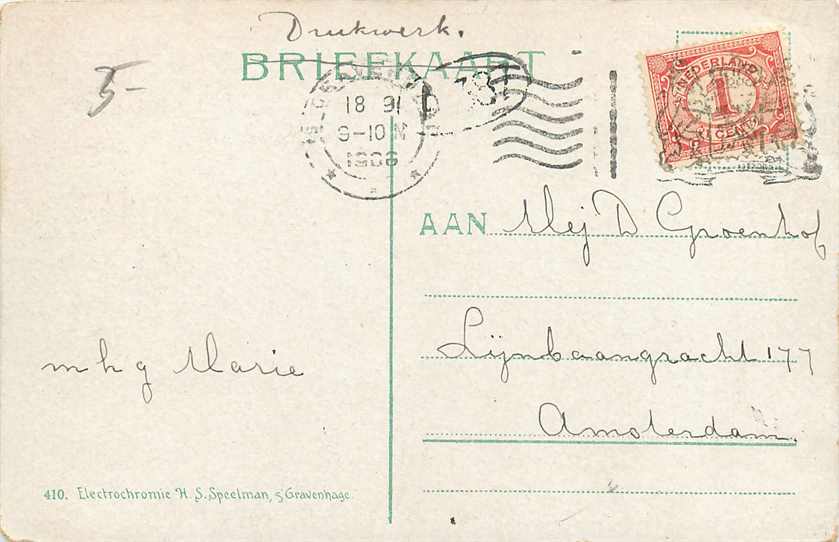 Drukwerk.
BRIEFKAART
5-
18 9
9-10 N
NEDERLAND
1
CENT
AAN Mej D Groenhof
Lijnbaangracht 177
Amsterdam.
m h g Marie
410. Electrochromie H. S. Speelman, 's Gravenhage.